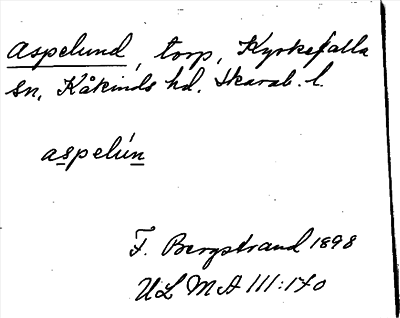 Aspelund, torp, Kyrkefalla
sn, Kåkinds hd. Skarab. l.
aspelún
F. Bergstrand 1898
ULMA 111:140